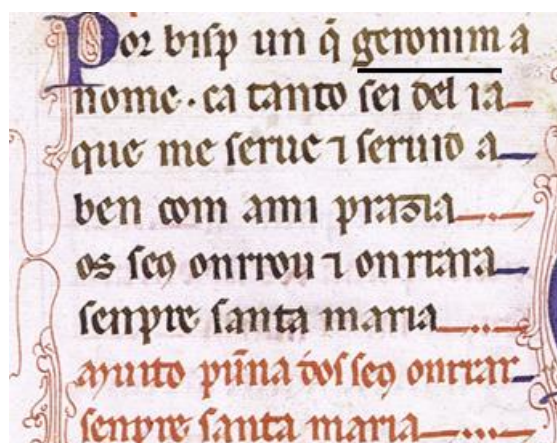 Por bisp un q̃ geronim a
nome · ca tanto sei del ia
que me serue ⁊ seruid a
ben com ami prazia
os seꝯ onrrou ⁊ onrrara
senpre santa maria
Muito pũna dos seꝯ onrrar
senpre santa maria